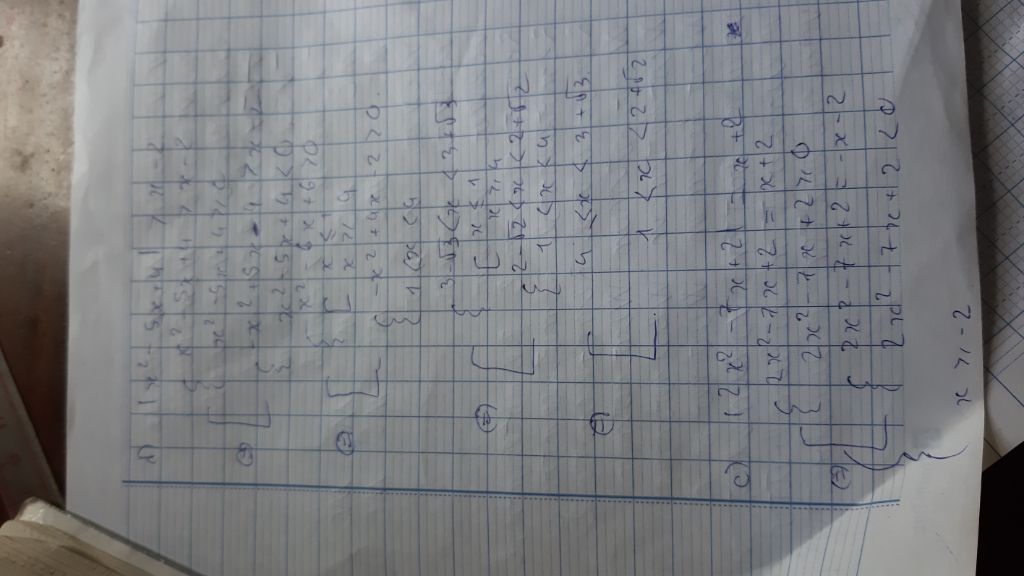 b) |x² - 5x + 4| > x - 2
x² - 5x + 4 > x - 2
x² - 5x + 4 ≥ 0
⇔ -x² + 5x - 4 > x - 2
x² - 5x + 4 < 0
x² - 6x + 6 > 0
⇔ x ≤ 1
x ≥ 4
-x² + 4x - 2 > 0
1 < x < 4
3 - √3 < x < 3 + √3
⇔ x ≤ 1
x ≥ 4
2 - √2 < x < 2 + √2
1 < x < 4
⇔ 4 ≤ x < 3 + √3
1 < x < 2 + √2
c) |2x² - 7x + 2| = x + 2
2x² - 7x + 2 = x + 2
2x² - 7x + 2 ≥ 0
⇔ 2x² - 7x + 2 = -x - 2
2x² - 7x + 2 < 0
x ≥ -2